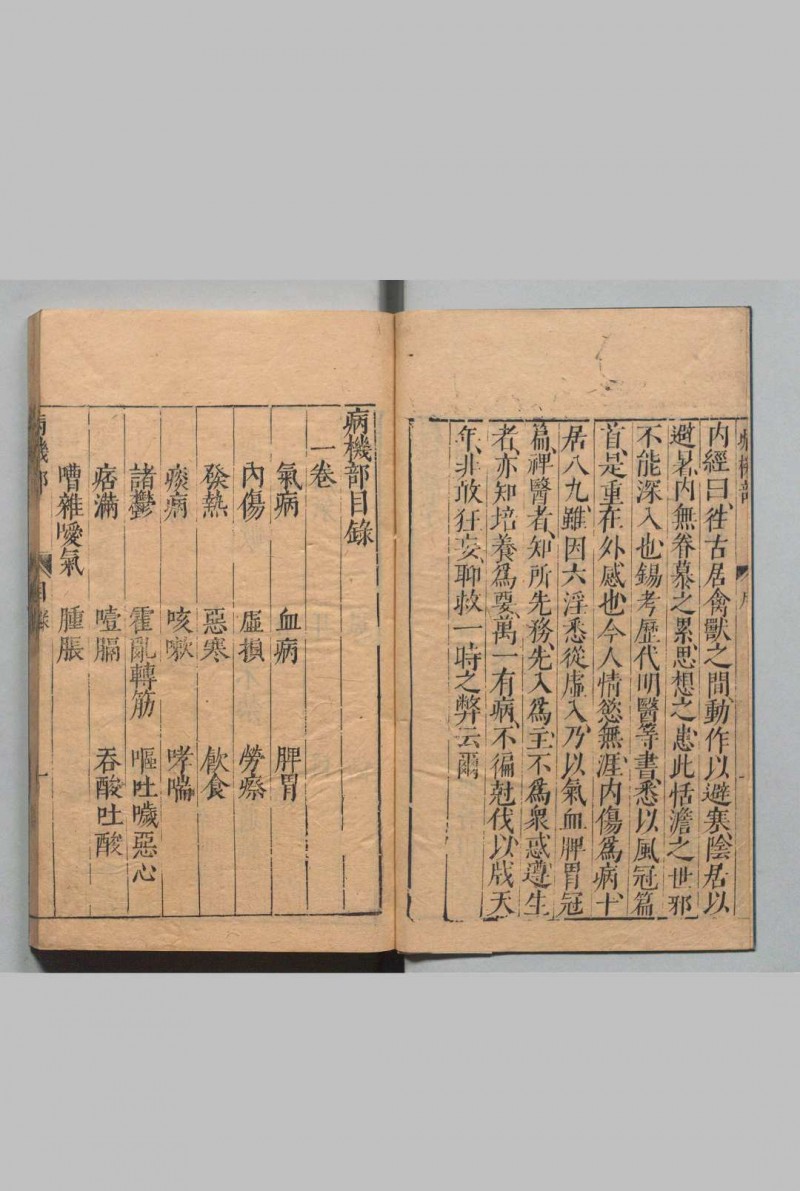 內經曰、徃古居禽獸之間、動作以避寒、陰居以
避暑、內無眷慕之累、思想之患、此恬澹之世、邪
不能深入也、錫考歷代明醫等書、悉以風冠篇
首、是重在外感也、今人情慾無涯、內傷爲病、十
居八九、雖因六淫、悉從虛入、乃以氣血脾胃冠
篇、裨醫者、知所先務、先入爲主、不爲衆惑、遵生
者、亦知培養爲要、萬一有病、不徧尅伐、以戕天
年、非敢狂妄、聊救一時之弊云爾
病機部目錄
一卷
氣病 血病 脾胃
內傷 虛損 勞瘵
發熱 惡寒 飲食
痰病 咳嗽 哮喘
諸鬱 霍亂轉筋 嘔吐噦惡心
痞滿 噎膈 吞酸吐酸
嘈雜噯氣 腫脹
病機部 目錄 一